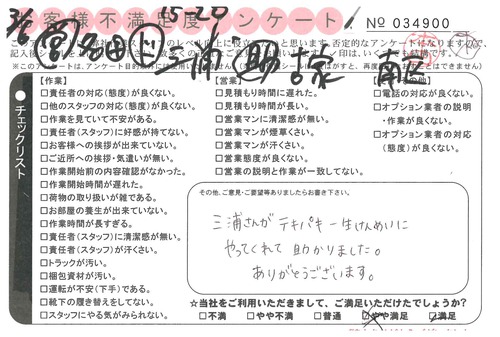 お客様不満足度アンケート
15-20
No 034900
3/6
三浦
チェックリスト
【作業】
□責任者の対応(態度)が良くない。
□他のスタッフの対応(態度)が良くない。
□作業を見ていて不安がある。
□責任者(スタッフ)に好感が持てない。
□お客様への挨拶が出来ていない。
□ご近所への挨拶・気遣いが無い。
□作業開始前の内容確認がなかった。
□作業開始時間が遅れた。
□荷物の取り扱いが雑である。
□お部屋の養生が出来ていない。
□作業時間が長すぎる。
□責任者(スタッフ)に清潔感が無い。
□責任者(スタッフ)が汗くさい。
□トラックが汚い。
□梱包資材が汚い。
□運転が不安(下手)である。
□靴下の履き替えをしてない。
□スタッフにやる気がみられない。
【営業】
□見積もり時間に遅れた。
□見積もり時間が長い。
□営業マンに清潔感が無い。
□営業マンが煙草くさい。
□営業マンが汗くさい。
□営業態度が良くない。
□営業の説明と作業が一致してない。
□電話の対応が良くない。
□オプション業者の説明
・作業が良くない。
□オプション業者の対応
(態度)が良くない。
その他、ご意見・ご要望等ありましたらお書き下さい。
三浦さんがテキパキ一生けんめいに
やってくれて助かりました。
ありがとうございます。
☆当社をご利用いただきまして、ご満足いただけたでしょうか?
□不満 □やや不満 □普通 □やや満足 □満足